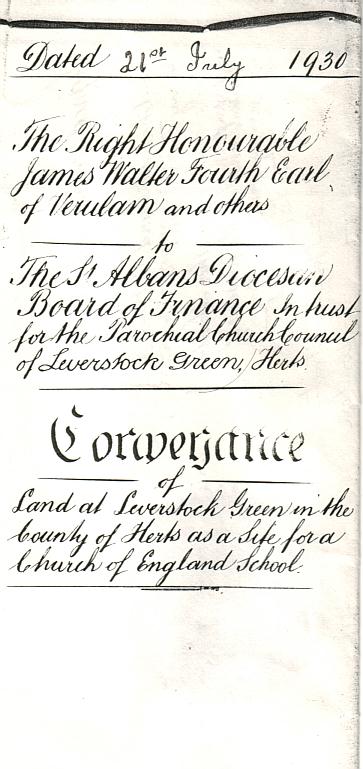 Dated 21st July 1930
The Right Honourable
James Walter Fourth Earl
of Verulam and others
to
The St Albans Diocesan
Board of Finance In trust
for the Parochial Church Council
of Leverstock Green, Herts.
Conveyance
of
Land at Leverstock Green in the
County of Herts as a Site for a
Church of England School.